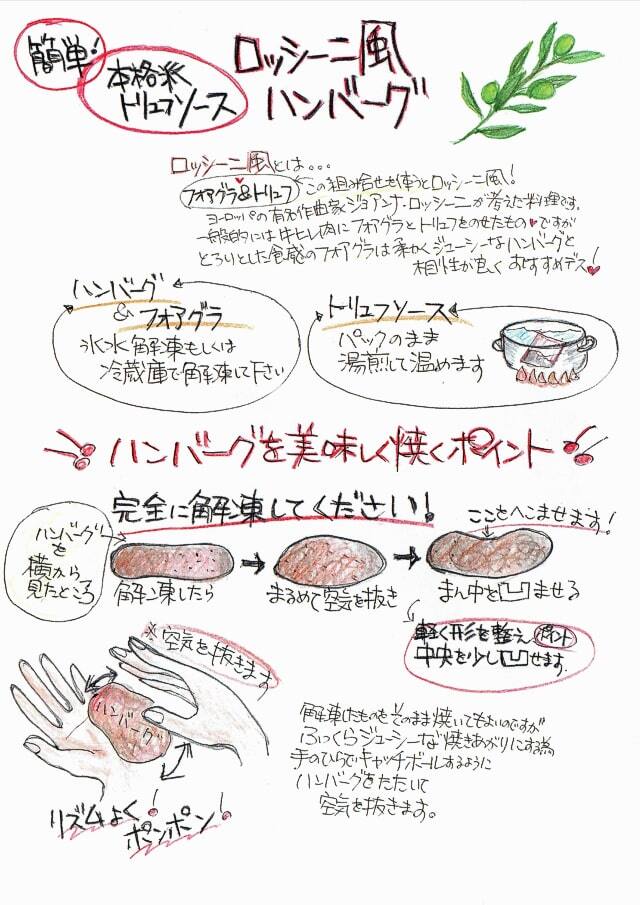 簡単!
本格派
トリュフソース
ロッシーニ風
ハンバーグ
ロッシーニ風とは...
フォアグラ&トリュフ この組み合せを使うとロッシーニ風!
ヨーロッパの有名作曲家ジョアンナ・ロッシーニが考えた料理です。
一般的には牛ヒレ肉にフォアグラとトリュフをのせたもの♥ですが
とろりとした食感のフォアグラは柔わくジューシーなハンバーグと
相性が良く おすすめデス♥!
ハンバーグ
&フォアグラ
氷水解凍もしくは
冷蔵庫で解凍して下さい
トリュフソース
パックのまま
湯煎して温めます
ハンバーグを美味しく焼くポイント
完全に解凍してください!
ここをへこませます!
ハンバーグ
を
横から
見たところ
解凍したら
まるめて空気を抜き
まん中を凹ませる
軽く形を整え ポイント
中央を少し凹せます。
※空気を抜きます
ハンバーグ
リズムよく!
ポンポン!
解凍したものをそのまま焼いてもよいのですが
ふっくらジューシーな焼きあがりにする為
手のひらでキャッチボールするように
ハンバーグをたたいて
空気を抜きます。